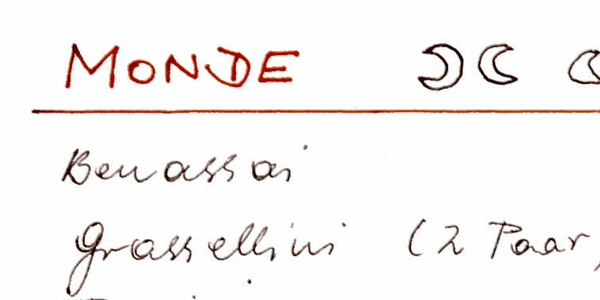 MONDE
Benassai
Grassellini (2 Paar,